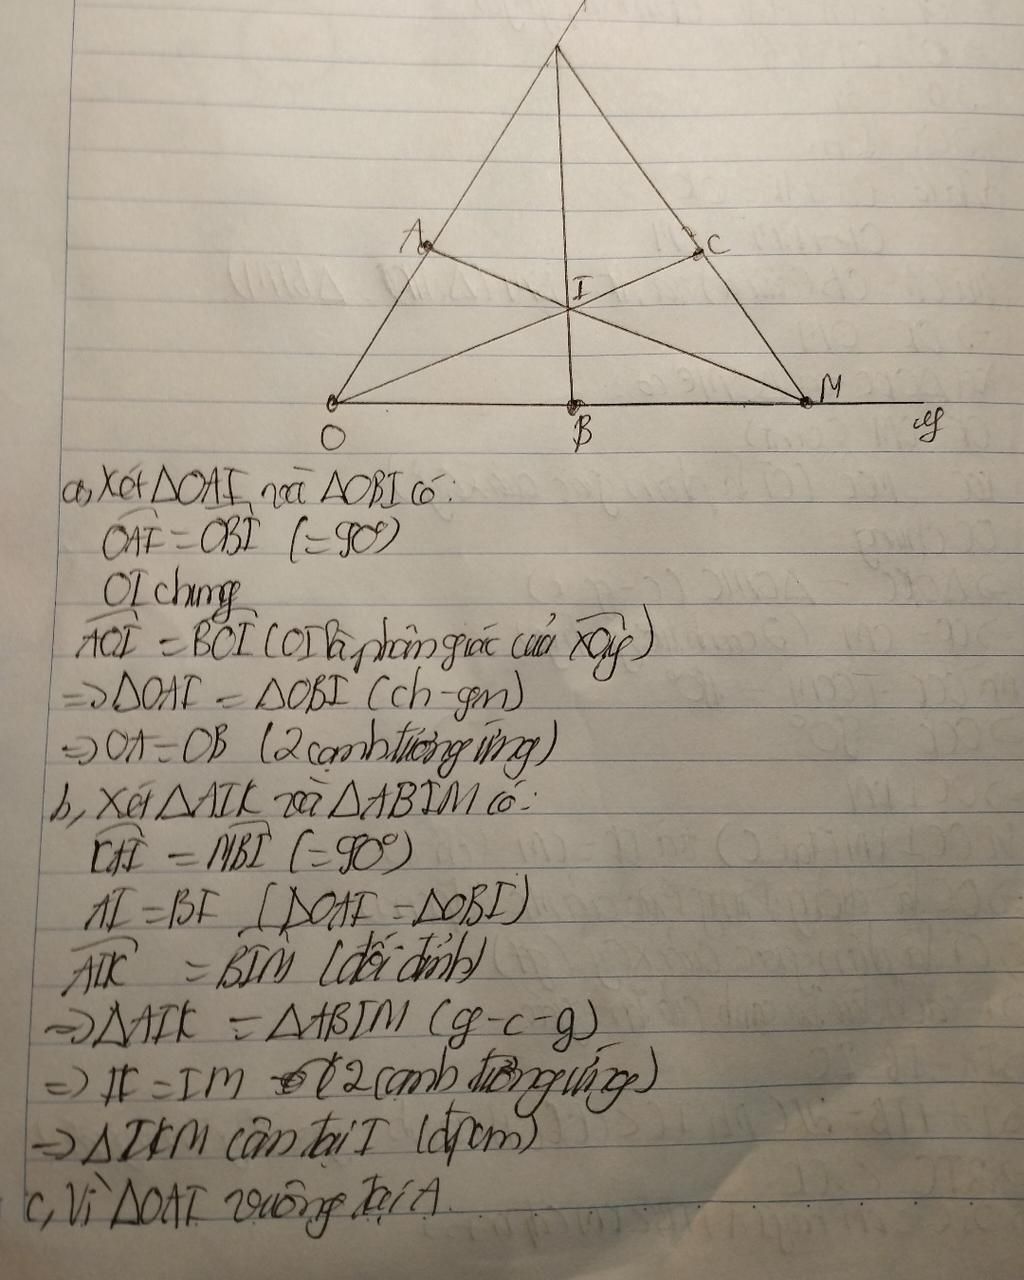 A
C
I
M
O
B
y
a, Xét △OAI và △OBI có:
OAI = OBI (=90°)
OI chung
AOI = BOI (OI là phân giác của xOy)
=> △OAI = △OBI (ch-gn)
=> OA = OB (2 cạnh tương ứng)
b, Xét △AIK và △ABIM có:
KAI = MBI (=90°)
AI = BI (△OAI = △OBI)
AIK = BIM (đối đỉnh)
=> △AIK = △ABIM (g-c-g)
=> IK = IM (2 cạnh tương ứng)
=> △IKM cân tại I (đpcm)
c, Vì △OAI vuông tại A